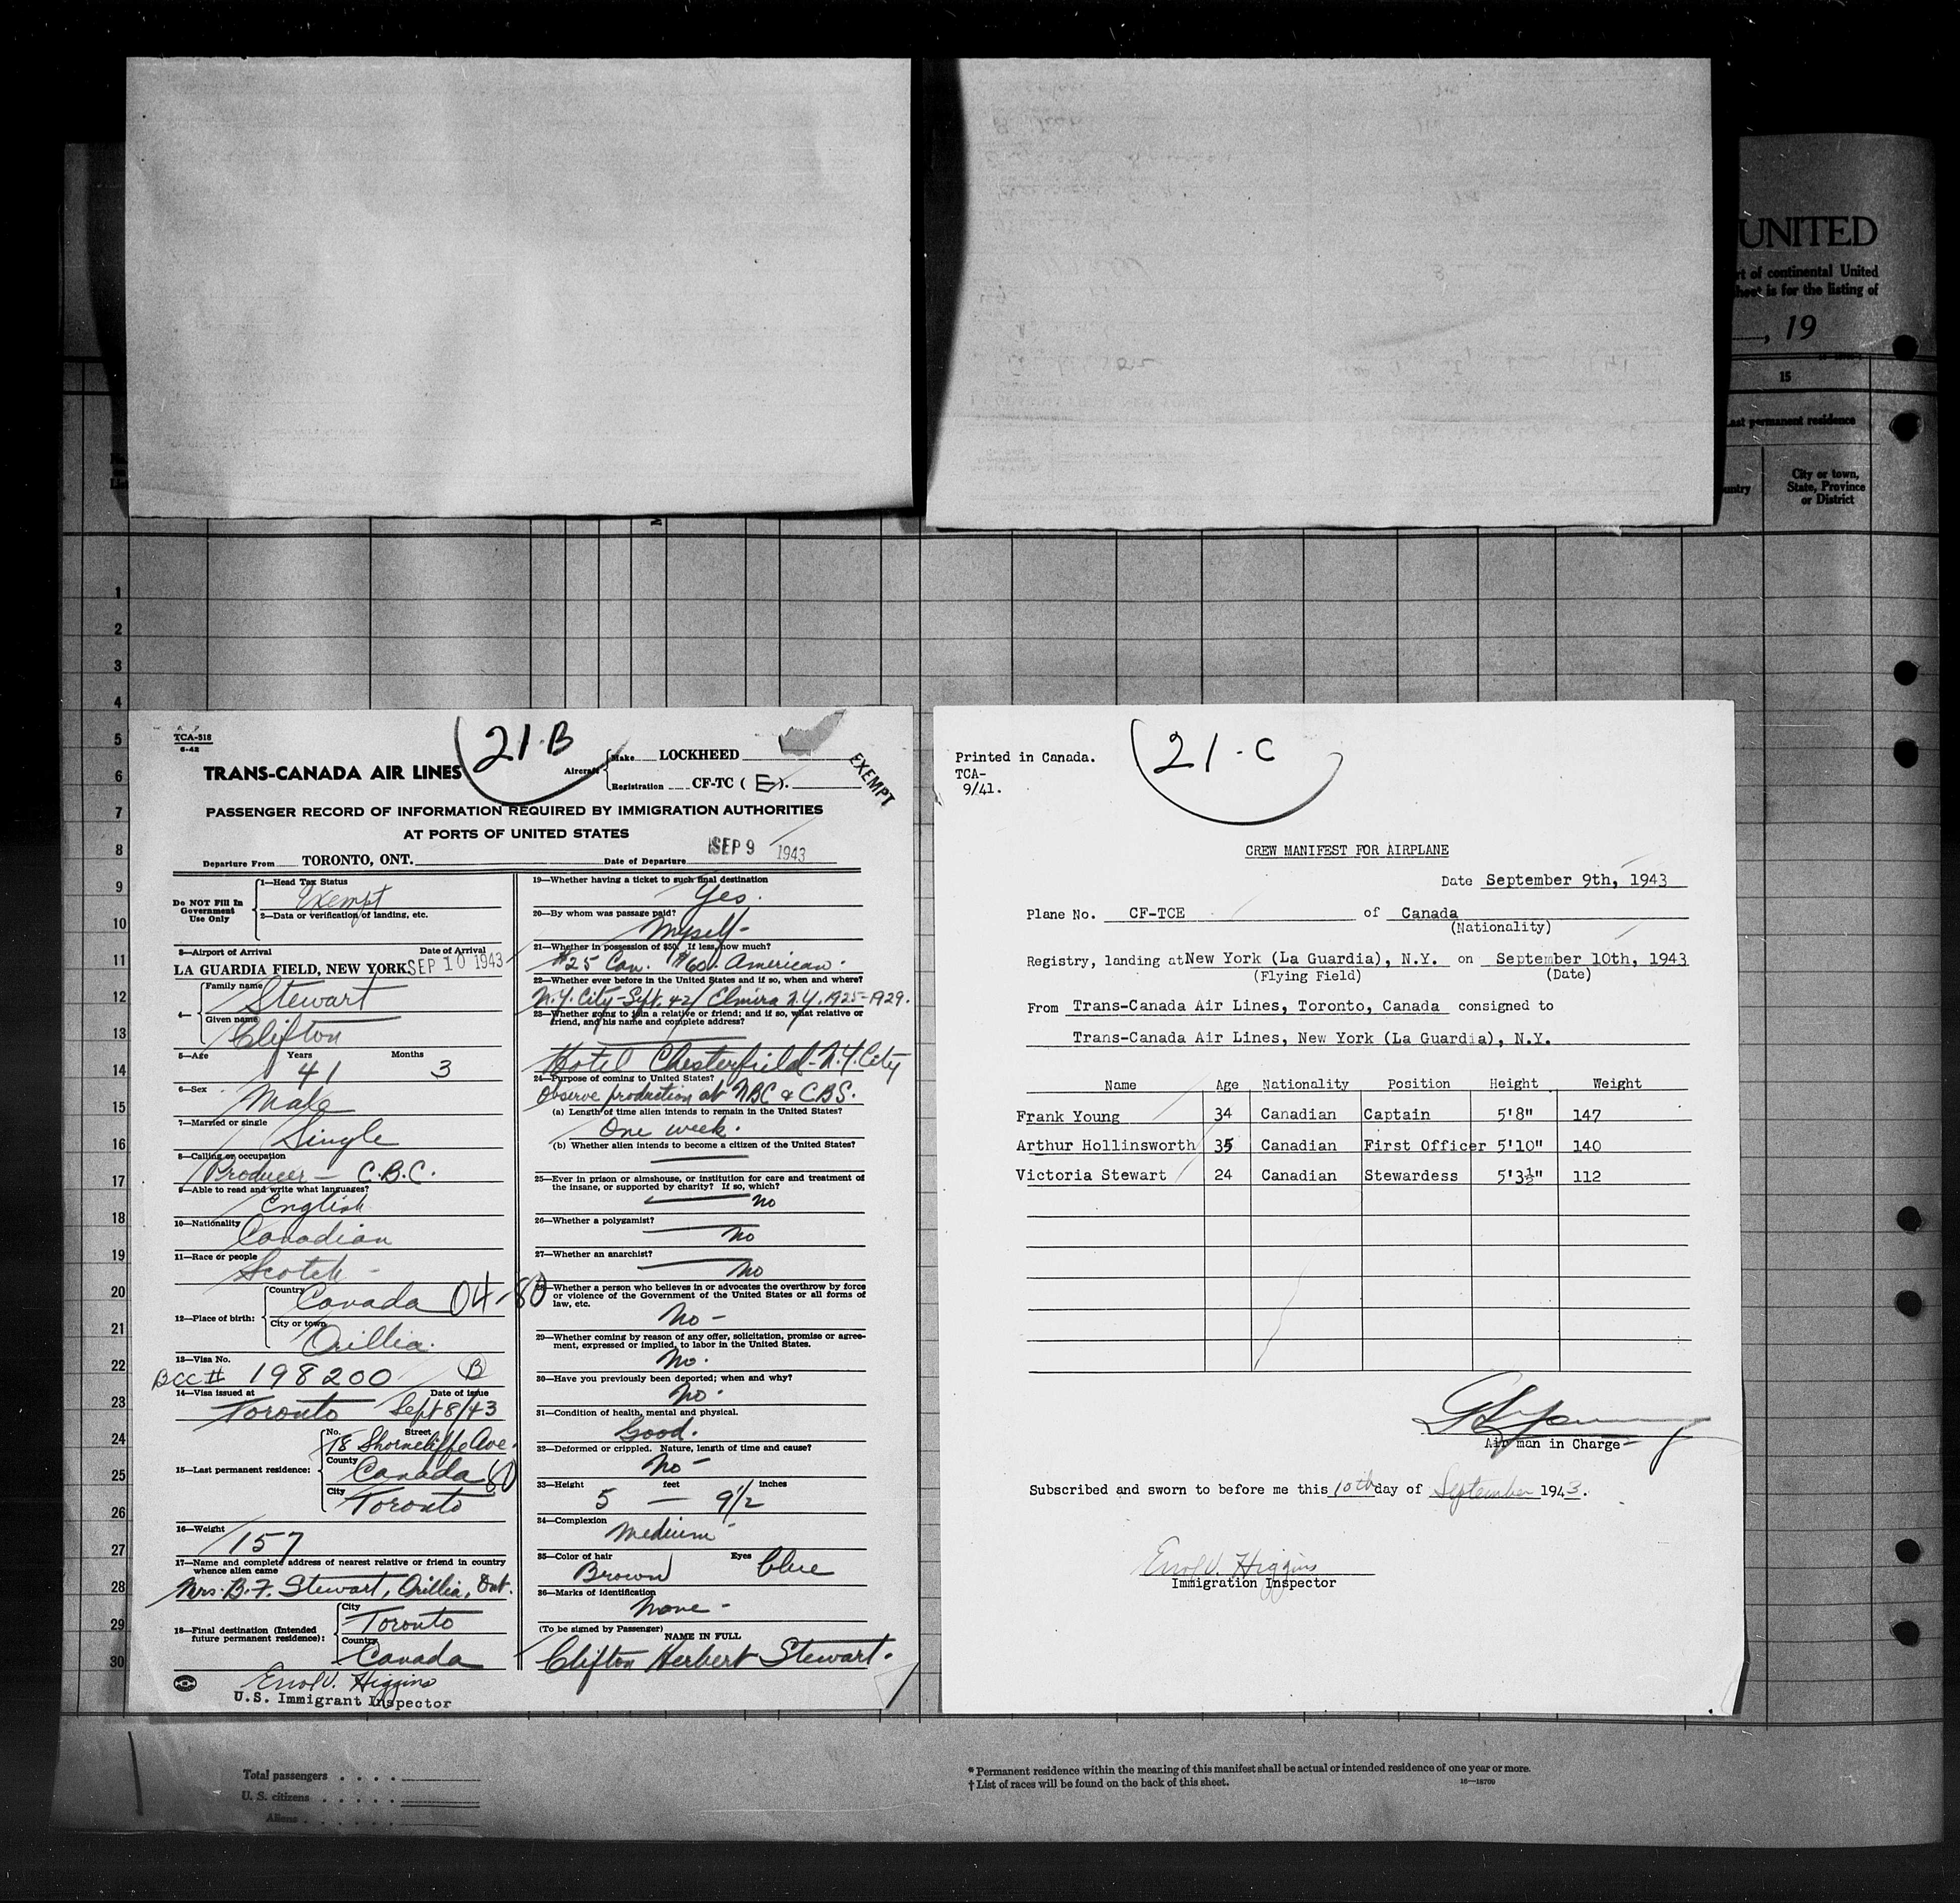 UNITED
rt of continental United
heet is for the listing of
, 19
15
ast permanent residence
untry
City or town,
State, Province
or District
1
2
3
4
5
6
7
8
9
10
11
12
13
14
15
16
17
18
19
20
21
22
23
24
25
26
27
28
29
30
TCA-518
6-42
21-B
TRANS-CANADA AIR LINES
Aircraft
Make LOCKHEED
Registration CF-TC (E).
EXEMPT
PASSENGER RECORD OF INFORMATION REQUIRED BY IMMIGRATION AUTHORITIES
AT PORTS OF UNITED STATES
Departure From TORONTO, ONT. Date of Departure SEP 9 1943
Do NOT Fill In
Government
Use Only
1—Head Tax Status
Exempt
2—Data or verification of landing, etc.
3—Airport of Arrival Date of Arrival
LA GUARDIA FIELD, NEW YORK SEP 10 1943
4—
Family name
Stewart
Given name
Clifton
5—Age Years Months
41 3
6—Sex
Male
7—Married or single
Single
8—Calling or occupation
Producer — C.B.C.
9—Able to read and write what languages?
English
10—Nationality
Canadian
11—Race or people
Scotch -
12—Place of birth:
Country
Canada 04-80
City or town
Orillia.
13—Visa No.
BCC# 198200 B
14—Visa issued at Date of issue
Toronto Sept 8/43
15—Last permanent residence:
No. Street
18 Shorncliffe Ave.
County
Canada 80
City
Toronto
16—Weight
157
17—Name and complete address of nearest relative or friend in country
whence alien came
Mrs. B. F. Stewart, Orillia, Ont.
18—Final destination (Intended
future permanent residence):
City
Toronto
Country
Canada
Errol V. Higgins
U.S. Immigrant Inspector
19—Whether having a ticket to such final destination
Yes.
20—By whom was passage paid?
Myself-
21—Whether in possession of $50. If less, how much?
$25 Can. $60. American.
22—Whether ever before in the United States and if so, when and where?
N.Y. City-Sept. 42/ Elmira N.Y. 1925-1929.
23—Whether going to join a relative or friend; and if so, what relative or
friend, and his name and complete address?
Hotel Chesterfield-N.Y. City
24—Purpose of coming to United States?
Observe production at NBC & CBS.
(a) Length of time alien intends to remain in the United States?
One week.
(b) Whether alien intends to become a citizen of the United States?
25—Ever in prison or almshouse, or institution for care and treatment of
the insane, or supported by charity? If so, which?
No
26—Whether a polygamist?
No
27—Whether an anarchist?
No
28—Whether a person who believes in or advocates the overthrow by force
or violence of the Government of the United States or all forms of
law, etc.
No-
29—Whether coming by reason of any offer, solicitation, promise or agree-
ment, expressed or implied, to labor in the United States.
No.
30—Have you previously been deported; when and why?
No.
31—Condition of health, mental and physical.
Good.
32—Deformed or crippled. Nature, length of time and cause?
No-
33—Height feet inches
5 — 9½
34—Complexion
Medium
35—Color of hair Eyes
Brown blue
36—Marks of identification
None-
(To be signed by Passenger) NAME IN FULL
Clifton Herbert Stewart.
Printed in Canada.
TCA-
9/41.
21-C
CREW MANIFEST FOR AIRPLANE
Date September 9th, 1943
Plane No. CF-TCE of Canada
(Nationality)
Registry, landing at New York (La Guardia), N.Y. on September 10th, 1943
(Flying Field) (Date)
From Trans-Canada Air Lines, Toronto, Canada consigned to
Trans-Canada Air Lines, New York (La Guardia), N.Y.
Name Age Nationality Position Height Weight
Frank Young 34 Canadian Captain 5'8" 147
Arthur Hollinsworth 35 Canadian First Officer 5'10" 140
Victoria Stewart 24 Canadian Stewardess 5'3½" 112
Airman in Charge
Subscribed and sworn to before me this 10th day of September 1943.
Errol V. Higgins
Immigration Inspector
Total passengers
U. S. citizens
Aliens
* Permanent residence within the meaning of this manifest shall be actual or intended residence of one year or more.
† List of races will be found on the back of this sheet. 16—18700